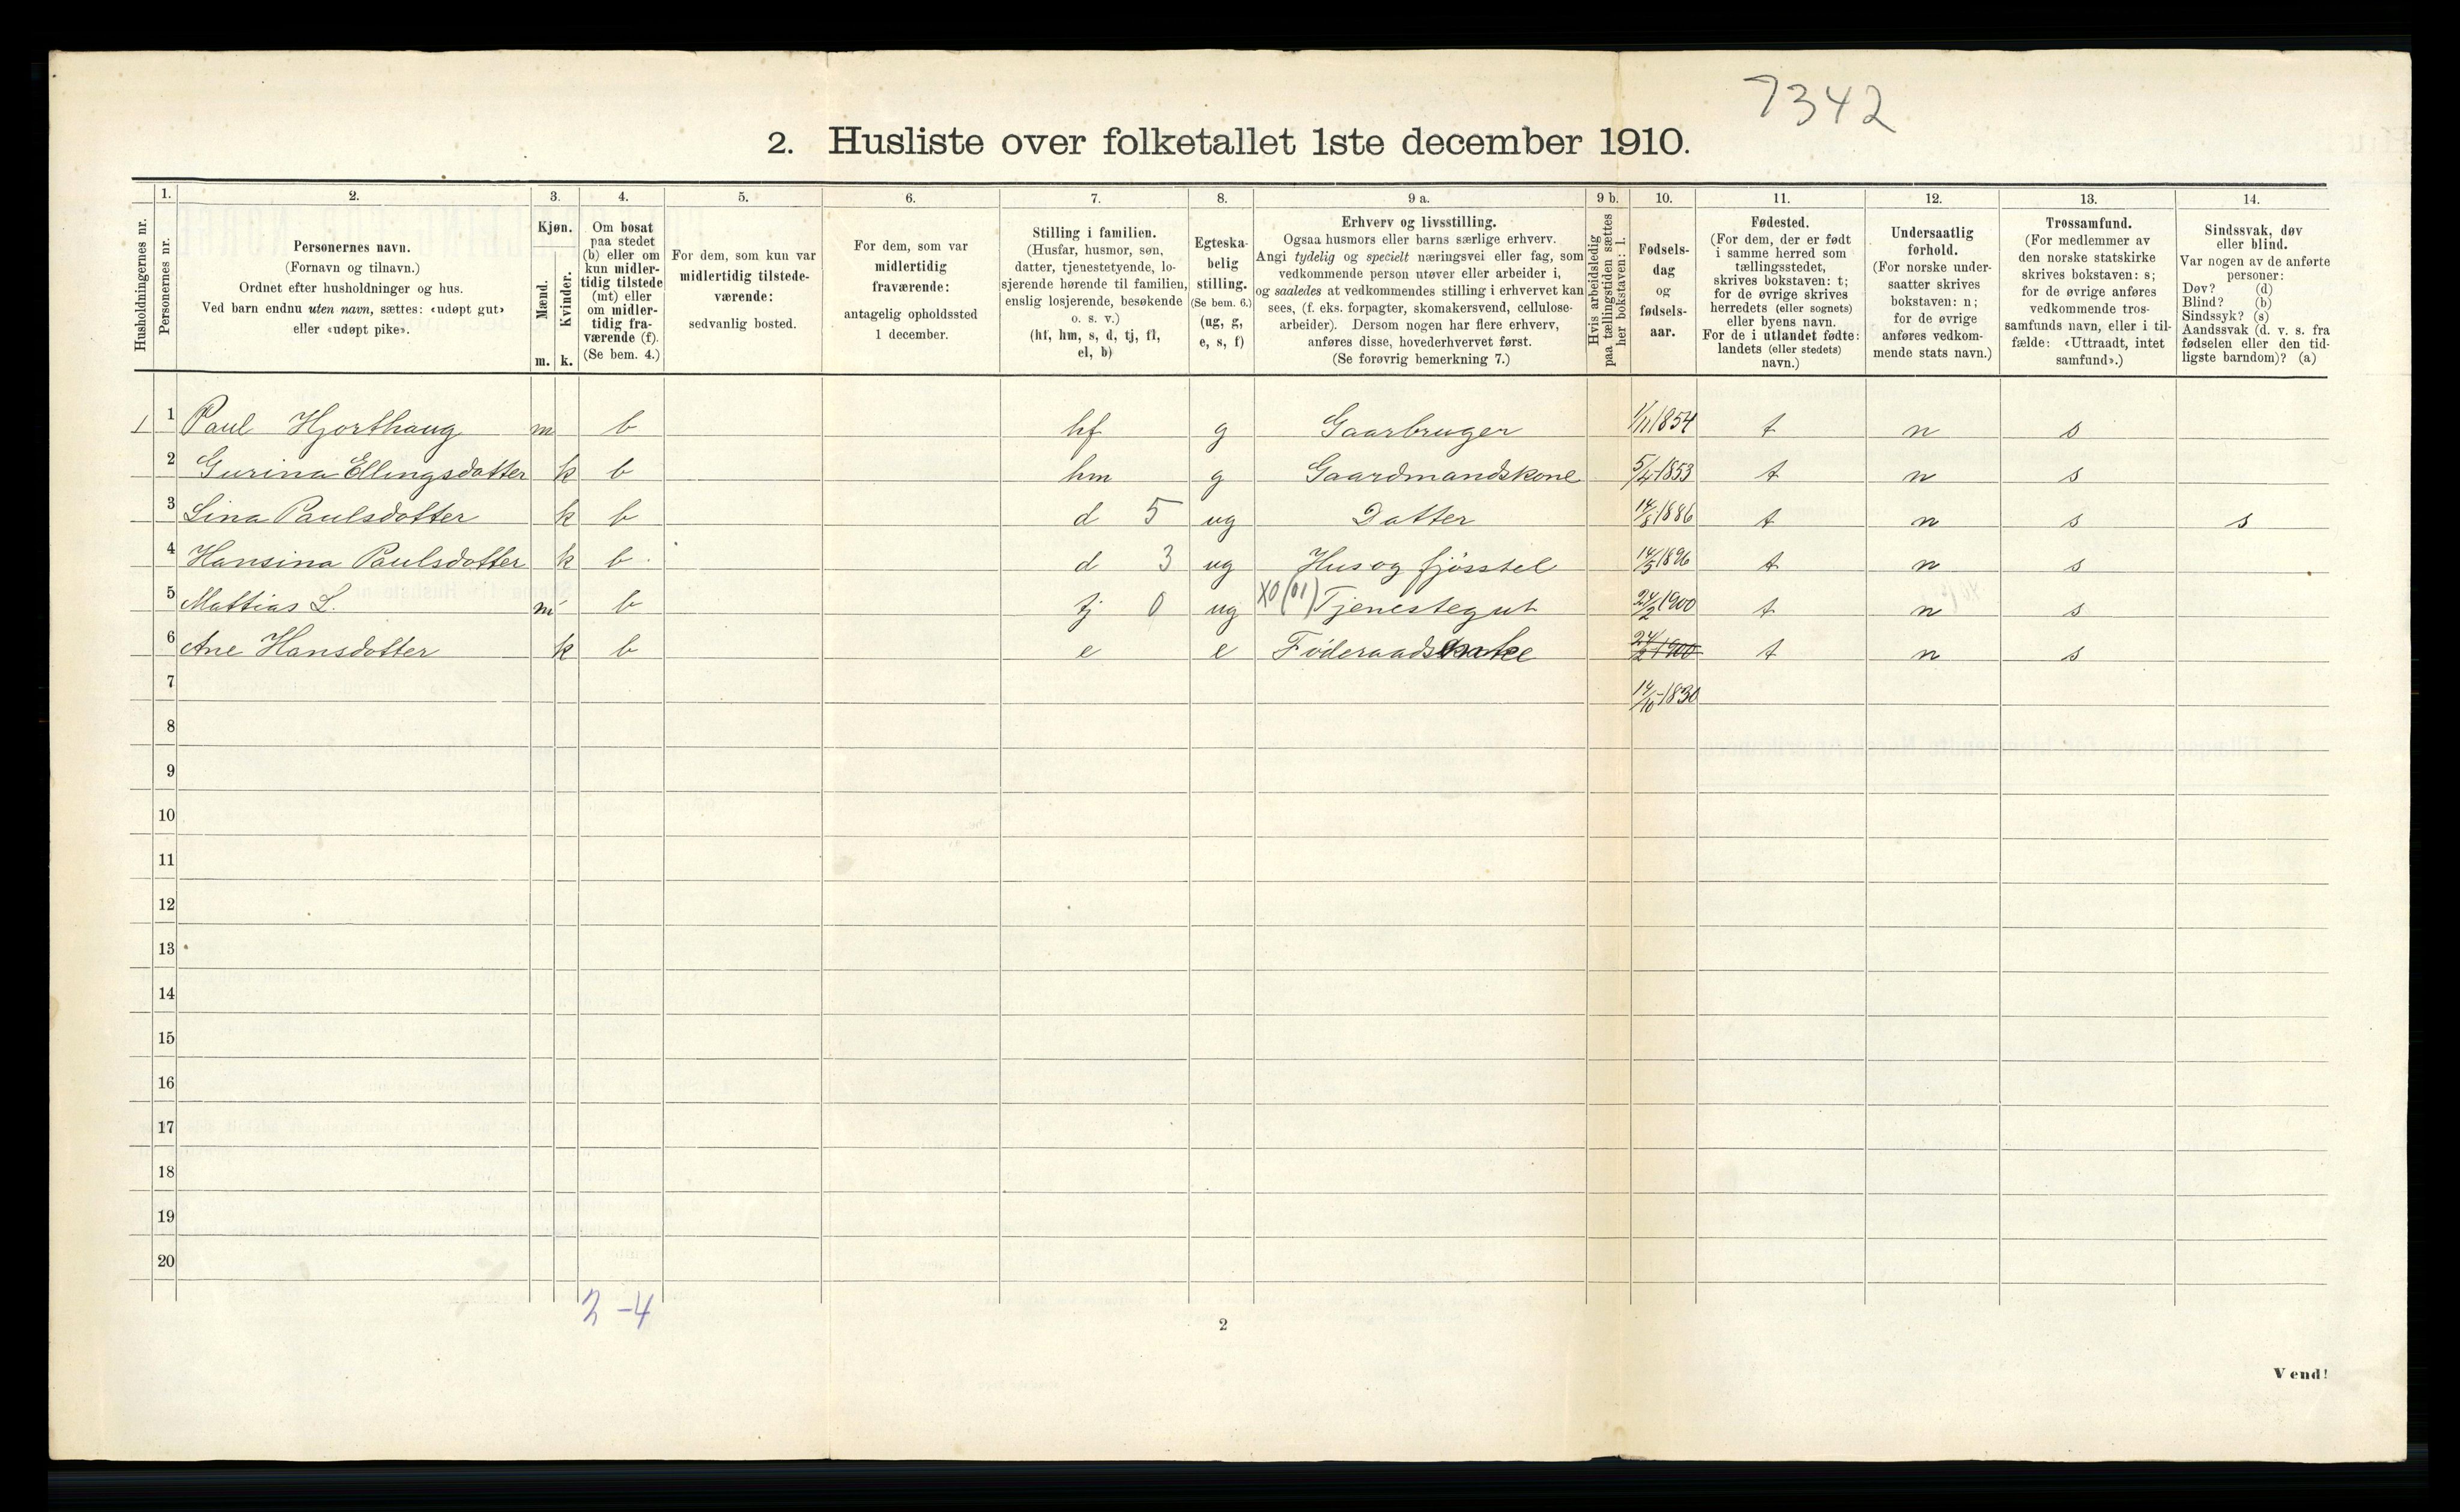 7342
2. Husliste over folketallet 1ste december 1910.
Husholdningernes nr.
1.
Personernes nr.
2.
Personernes navn.
(Fornavn og tilnavn.)
Ordnet efter husholdninger og hus.
Ved barn endnu uten navn, sættes: «udøpt gut»
eller «udøpt pike».
3.
Kjøn.
Mænd.
Kvinder.
m. k.
4.
Om bosat
paa stedet
(b) eller om
kun midler-
tidig tilstede
(mt) eller
om midler-
tidig fra-
værende (f).
(Se bem. 4.)
5.
For dem, som kun var
midlertidig tilstede-
værende:
sedvanlig bosted.
6.
For dem, som var
midlertidig
fraværende:
antagelig opholdssted
1 december.
7.
Stilling i familien.
(Husfar, husmor, søn,
datter, tjenestetyende, lo-
sjerende hørende til familien,
enslig losjerende, besøkende
o. s. v.)
(hf, hm, s, d, tj, fl,
el, b)
8.
Egteska-
belig
stilling.
(Se bem. 6.)
(ug, g,
e, s, f)
9 a.
Erhverv og livsstilling.
Ogsaa husmors eller barns særlige erhverv.
Angi tydelig og specielt næringsvei eller fag, som
vedkommende person utøver eller arbeider i,
og saaledes at vedkommendes stilling i erhvervet kan
sees, (f. eks. forpagter, skomakersvend, cellulose-
arbeider). Dersom nogen har flere erhverv,
anføres disse, hovederhvervet først.
(Se forøvrig bemerkning 7.)
9 b.
Hvis arbeidsledig
paa tællingstiden sættes
her bokstaven: l.
10.
Fødsels-
dag
og
fødsels-
aar.
11.
Fødested.
(For dem, der er født
i samme herred som
tællingsstedet,
skrives bokstaven: t;
for de øvrige skrives
herredets (eller sognets)
eller byens navn.
For de i utlandet fødte:
landets (eller stedets)
navn.)
12.
Undersaatlig
forhold.
(For norske under-
saatter skrives
bokstaven: n;
for de øvrige
anføres vedkom-
mende stats navn.)
13.
Trossamfund.
(For medlemmer av
den norske statskirke
skrives bokstaven: s;
for de øvrige anføres
vedkommende tros-
samfunds navn, eller i til-
fælde: «Uttraadt, intet
samfund».)
14.
Sindssvak, døv
eller blind.
Var nogen av de anførte
personer:
Døv? (d)
Blind? (b)
Sindssyk? (s)
Aandssvak (d. v. s. fra
fødselen eller den tid-
ligste barndom)? (a)
1 1 Paul Hjorthaug m b hf g Gaarbruger 1/11 1854 t n s
2 Gurina Ellingsdatter k b hm g Gaardmandskone 5/4-1853 t n s
3 Lina Paulsdotter k b d 5 ug Datter 14/8 1886 t n s s
4 Hansina Paulsdotter k b d 3 ug Hus og fjösstel 14/5 1896 t n s
5 Mattias L. m b tj 0 ug X0 (01) Tjenestegut 24/2 1900 t n s
6 Ane Hansdotter k b e e Föderaadsenke 24/2 1900 t n s
7 14/10-1830
8
9
10
11
12
13
14
15
16
17
18
19
20
2-4
2
Vend!